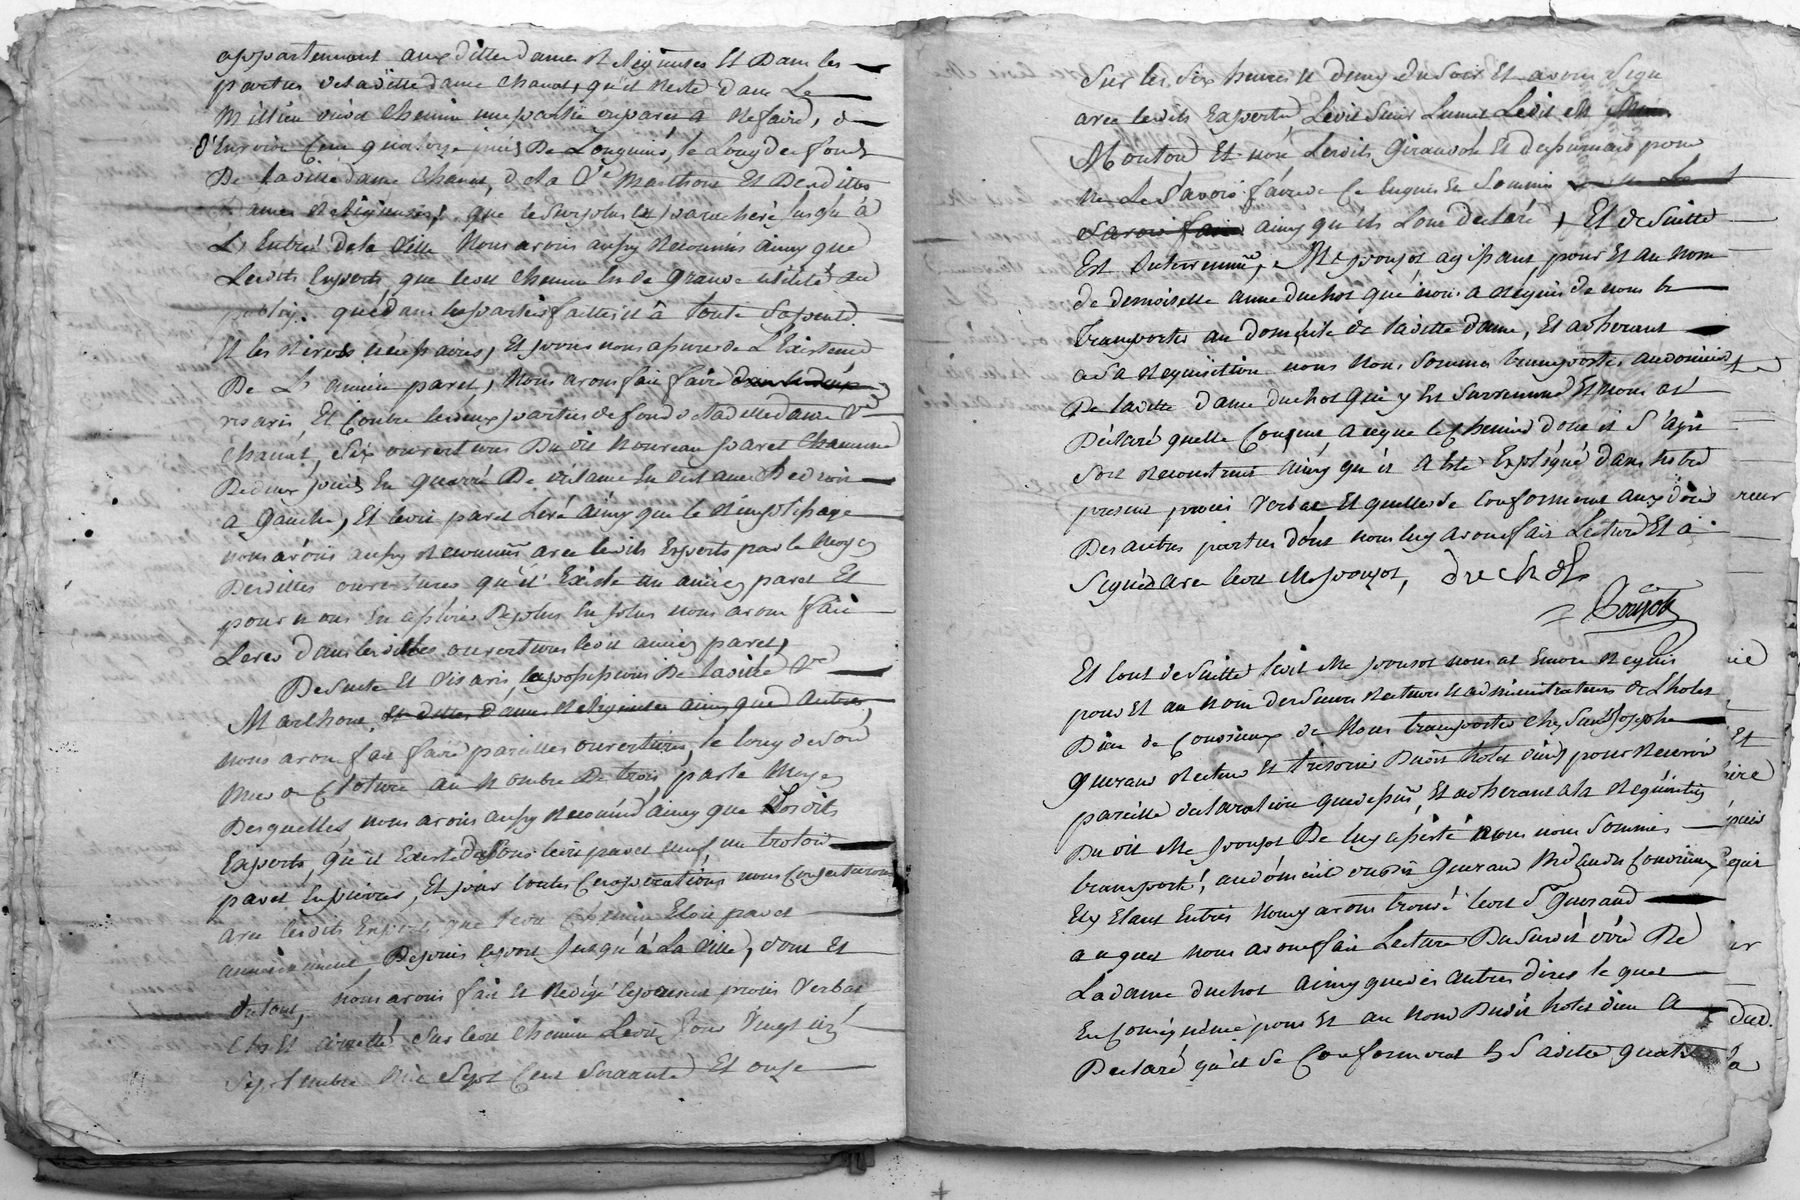 appartenant aux dittes dames Religieuses Et Dans les
parties de laditte dame chanut, qu'il Reste dans Le
Millieu dud chemin une partie en pavés a Refaire,
d'Environ Cent quatorze pieds De Longueur, le Long des fonds
De laditte dame Chanut, de la Ve Marthoux Et Desdittes
Dames Religieuses, que le Surplus est pavé jusqu'à
L'Entrée de la Ville Nous avons aussy Reconnus ainsy que
Lesdits Experts que ledit chemin Est de Grande utilité au
public que dans les parties failles il à toute Sa pente
Et les Rives pavées, Et pour nous assurer de L'Existence
De L'ancien pavet, Nous avons fait faire
vis avis, Et Contre les deux parties de fonds de laditte dame Ve
Chanut, Six ouvertures Du dit Nouveau pavet Chacune
De deux pieds En quarré De distance En distance De droite
a Gauche, Et ledit pavet Levé Ainsy que le
nous avons aussy Reconnus avec lesdits Experts par le Moyen
Desdittes ouvertures qu'il Existe un ancien pavet Et
pour nous En assurer De plus En plus nous avons fait
Lever dans lesdittes ouvertures ledit ancien pavet,
De Suitte Et vis avis les possessions De laditte Ve
Marthoux et dittes dames Religieuses ainsy que d autres,
nous avons fait faire pareilles ouvertures, le long de Son
Mur de Cloture au Nombre De trois par le Moyen
Desquelles nous avons aussy Reconnus ainsy que Lesdits
Experts, qu'il Existe dessous ledit pavet neuf un trotoir
pavet En pierres, Et par toutes Ces opérations nous Conjecturons
avec lesdits Experts que ledit Chemin Etoit pavet
anciennement, Depuis le pont Jusqu'à La Ville, dont Et
Du tout, nous avons fait Et Redigé le present procès Verbal
Clos Et arretté Sur ledit Chemin Ledit Jour Vingt
Septembre Mil Sept Cent Soixante Et onze
Sur les Six heures & demy du Soir Et avons Signé
avec lesdits Experts Ledit Sieur Lunet Ledit Me
Mouton Et non Lesdits Giraudon Et Despinasse pour
Ne Le Sçavoir faire de Ce Enquis Et Sommés
Sçavoir faire ainsy qu'ils L'ont declaré, Et de Suitte
Est Intervenu, Me poujot agissant pour Et au Nom
de demoiselle anne duchot que nous a Requis de nous
transporter au domicile de laditte dame, Et adherant
a Sa Requisition nous Nous Sommes transportés au domicile
De laditte dame duchot que y Est Survenue Et Nous at
Déclaré quelle Consent, a ceque le Chemin dont il S'agit
Soit Reconstruit Ainsy qu'il A Eté Expliqué dans Notre
present procès Verbal Et quelle se Conforment aux dires
Des autres parties dont nous luy avons fait Lecture Et a
Signé avec ledit Me poujot, duchot
Poujot
Et tout de Suitte ledit Me poujot nous at Encore Requis
pour Et au Nom des Sieurs Recteurs & administrateurs de L'hotel
Dieu de Condrieux de Nous transporter Chez Sieur Joseph
Guerand Recteur Et trésorier Dudit hotel dieu pour Recevoir
pareille declaration que dessus, Et adherant ala Requisition
Du dit Me poujot De luy assisté nous nous Sommes
transporté, au domicile dudit Guerand Md audit Condrieux
Et y Etant Entrés Nous y avons trouvé ledit Sr Guerand
auquel nous avons fait Lecture Du Susdit dire De
La dame duchot Ainsy que des autres dires lequel
En Conséquence pour Et au Nom Dudit hotel dieu A
Declaré qu'il Se Conformoit